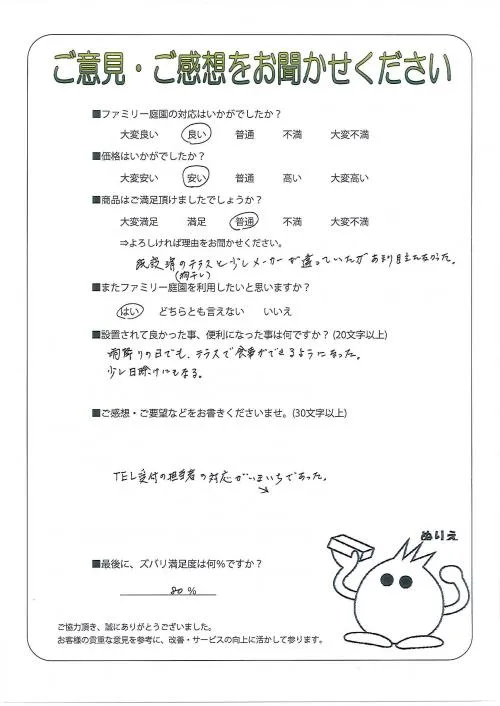 ご意見・ご感想をお聞かせください
■ファミリー庭園の対応はいかがでしたか?
大変良い 良い 普通 不満 大変不満
■価格はいかがでしたか?
大変安い 安い 普通 高い 大変高い
■商品はご満足頂けましたでしょうか?
大変満足 満足 普通 不満 大変不満
⇒よろしければ理由をお聞かせください。
のテラスと少しメーカーが違っていたがあまり目立たなかった。
■またファミリー庭園を利用したいと思いますか?
はい どちらとも言えない いいえ
■設置されて良かった事、便利になった事は何ですか? (20文字以上)
雨降りの日でも、テラスで食事ができるようになった。
少し日除けにもなる。
■ご感想・ご要望などをお書きくださいませ。(30文字以上)
TEL受付の担当者の対応がいまいちであった。
ぬりえ
■最後に、ズバリ満足度は何%ですか?
80%
ご協力頂き、誠にありがとうございました。
お客様の貴重な意見を参考に、改善・サービスの向上に活かして参ります。